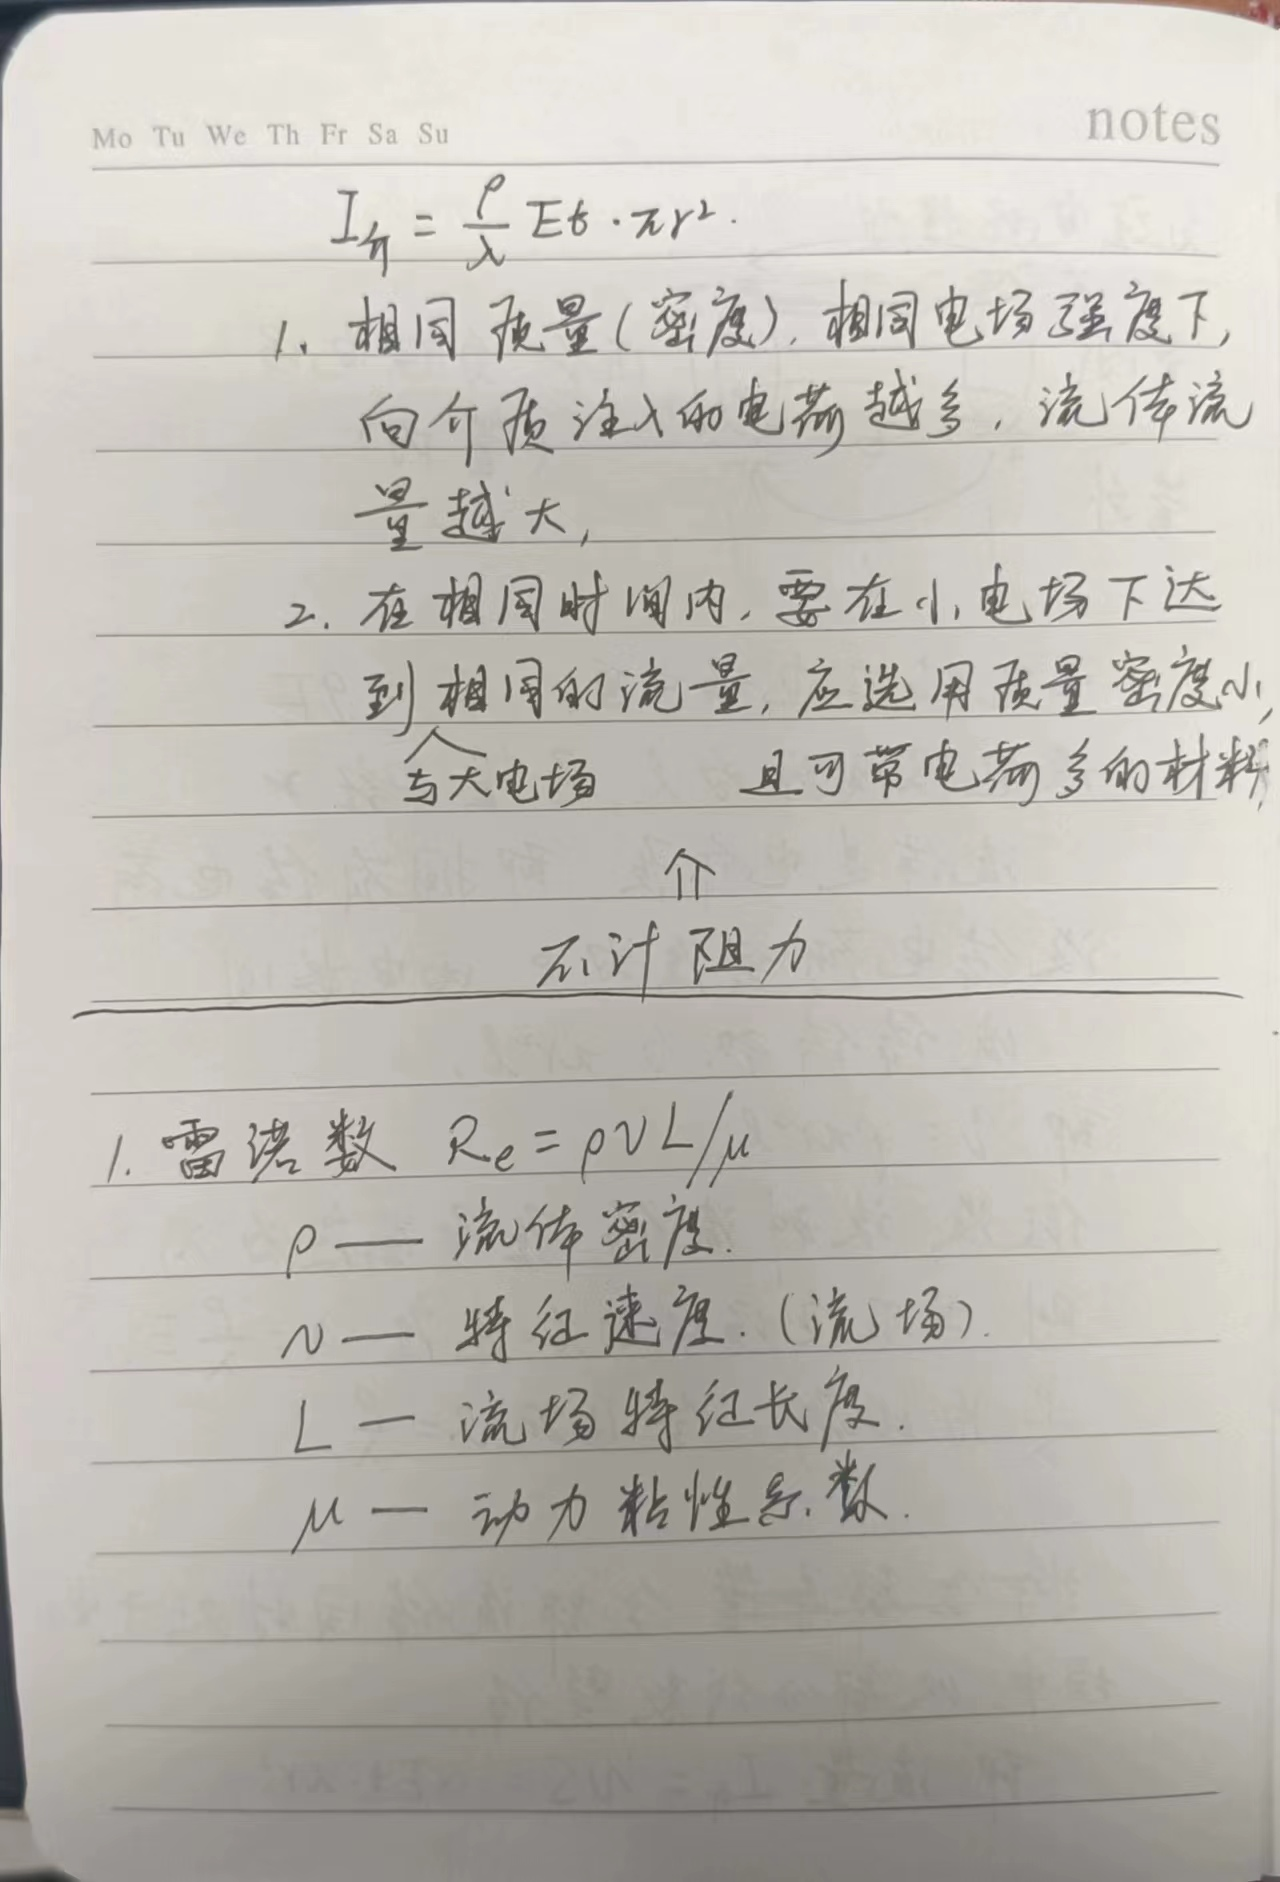 Mo Tu We Th Fr Sa Su
notes
I介 = ρ/λ Et · πr².
1. 相同质量(密度), 相同电场强度下,
向介质注入的电荷越多, 流体流
量越大,
2. 在相同时间内, 要在小电场下达
到相同的流量, 应选用质量密度小,
与大电场 且可带电荷多的材料,
介
不计阻力
1. 雷诺数 Re = ρvL/μ
ρ — 流体密度.
v — 特征速度. (流场).
L — 流场特征长度.
μ — 动力粘性系数.